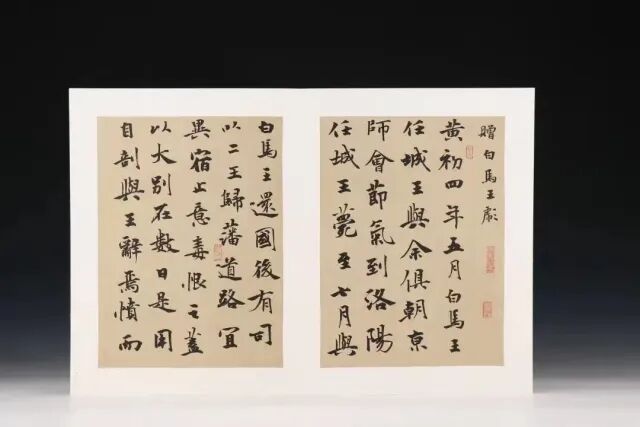 贈白馬王彪
黄初四年五月白馬王
任城王與余俱朝京
師會節氣到洛陽
任城王薨至七月與
白馬王還國後有司
以二王歸藩道路宜
異宿止意毒恨之蓋
以大別在數日是用
自剖與王辭焉憤而